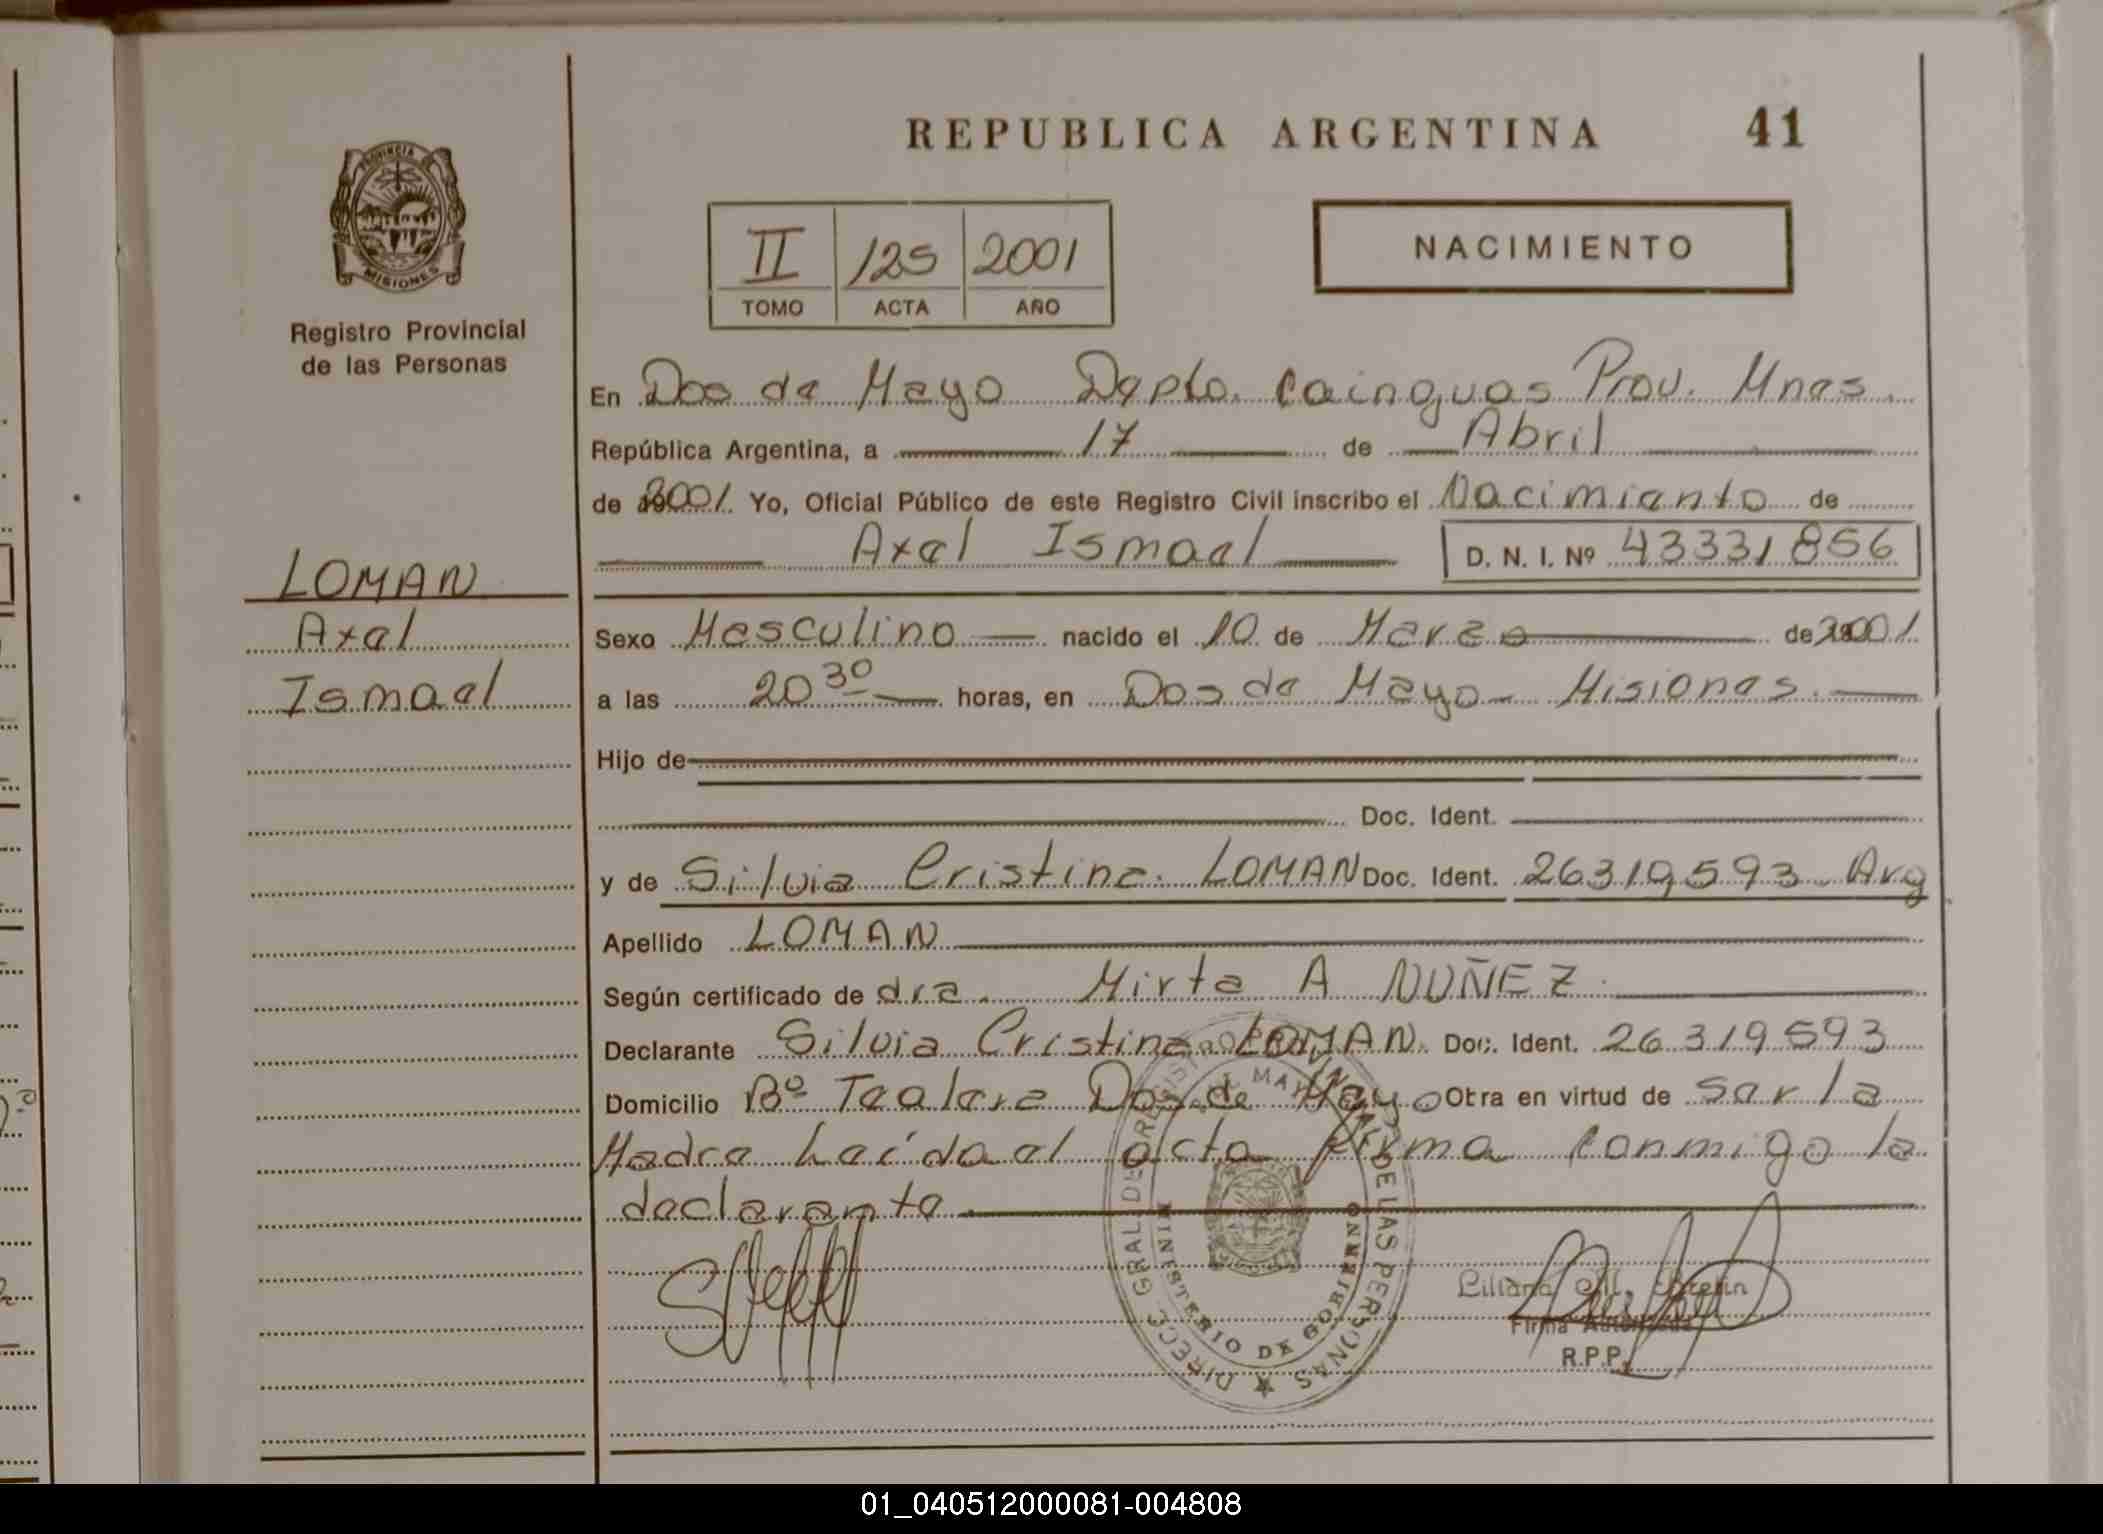 REPUBLICA ARGENTINA 41
PROVINCIA DE
MISIONES
Registro Provincial
de las Personas
II 125 2001
TOMO ACTA AÑO
NACIMIENTO
LOMAN
Axel
Ismael
En Dos de Mayo Depto. Cainguas Prov. Mnes.
República Argentina, a 17 de Abril
de 2001. Yo, Oficial Público de este Registro Civil inscribo el Nacimiento de
Axel Ismael D. N. I. Nº 43331856
Sexo Masculino nacido el 10 de Marzo de 2001
a las 20 30 horas, en Dos de Mayo - Misiones.
Hijo de
Doc. Ident.
y de Silvia Cristina LOMAN Doc. Ident. 26319593 Arg
Apellido LOMAN
Según certificado de dra. Mirta A NUÑEZ
Declarante Silvia Cristina LOMAN Doc. Ident. 26319593
Domicilio Bº Tealera Dos de Mayo Otra en virtud de ser la
Madre Leída el acta firma conmigo la
declarante
DIRECC GRAL DE REGISTRO PROVINCIAL DE LAS PERSONAS
MINISTERIO DE GOBIERNO
Liliana
Firma Autorizada
R.P.P.
01_040512000081-004808